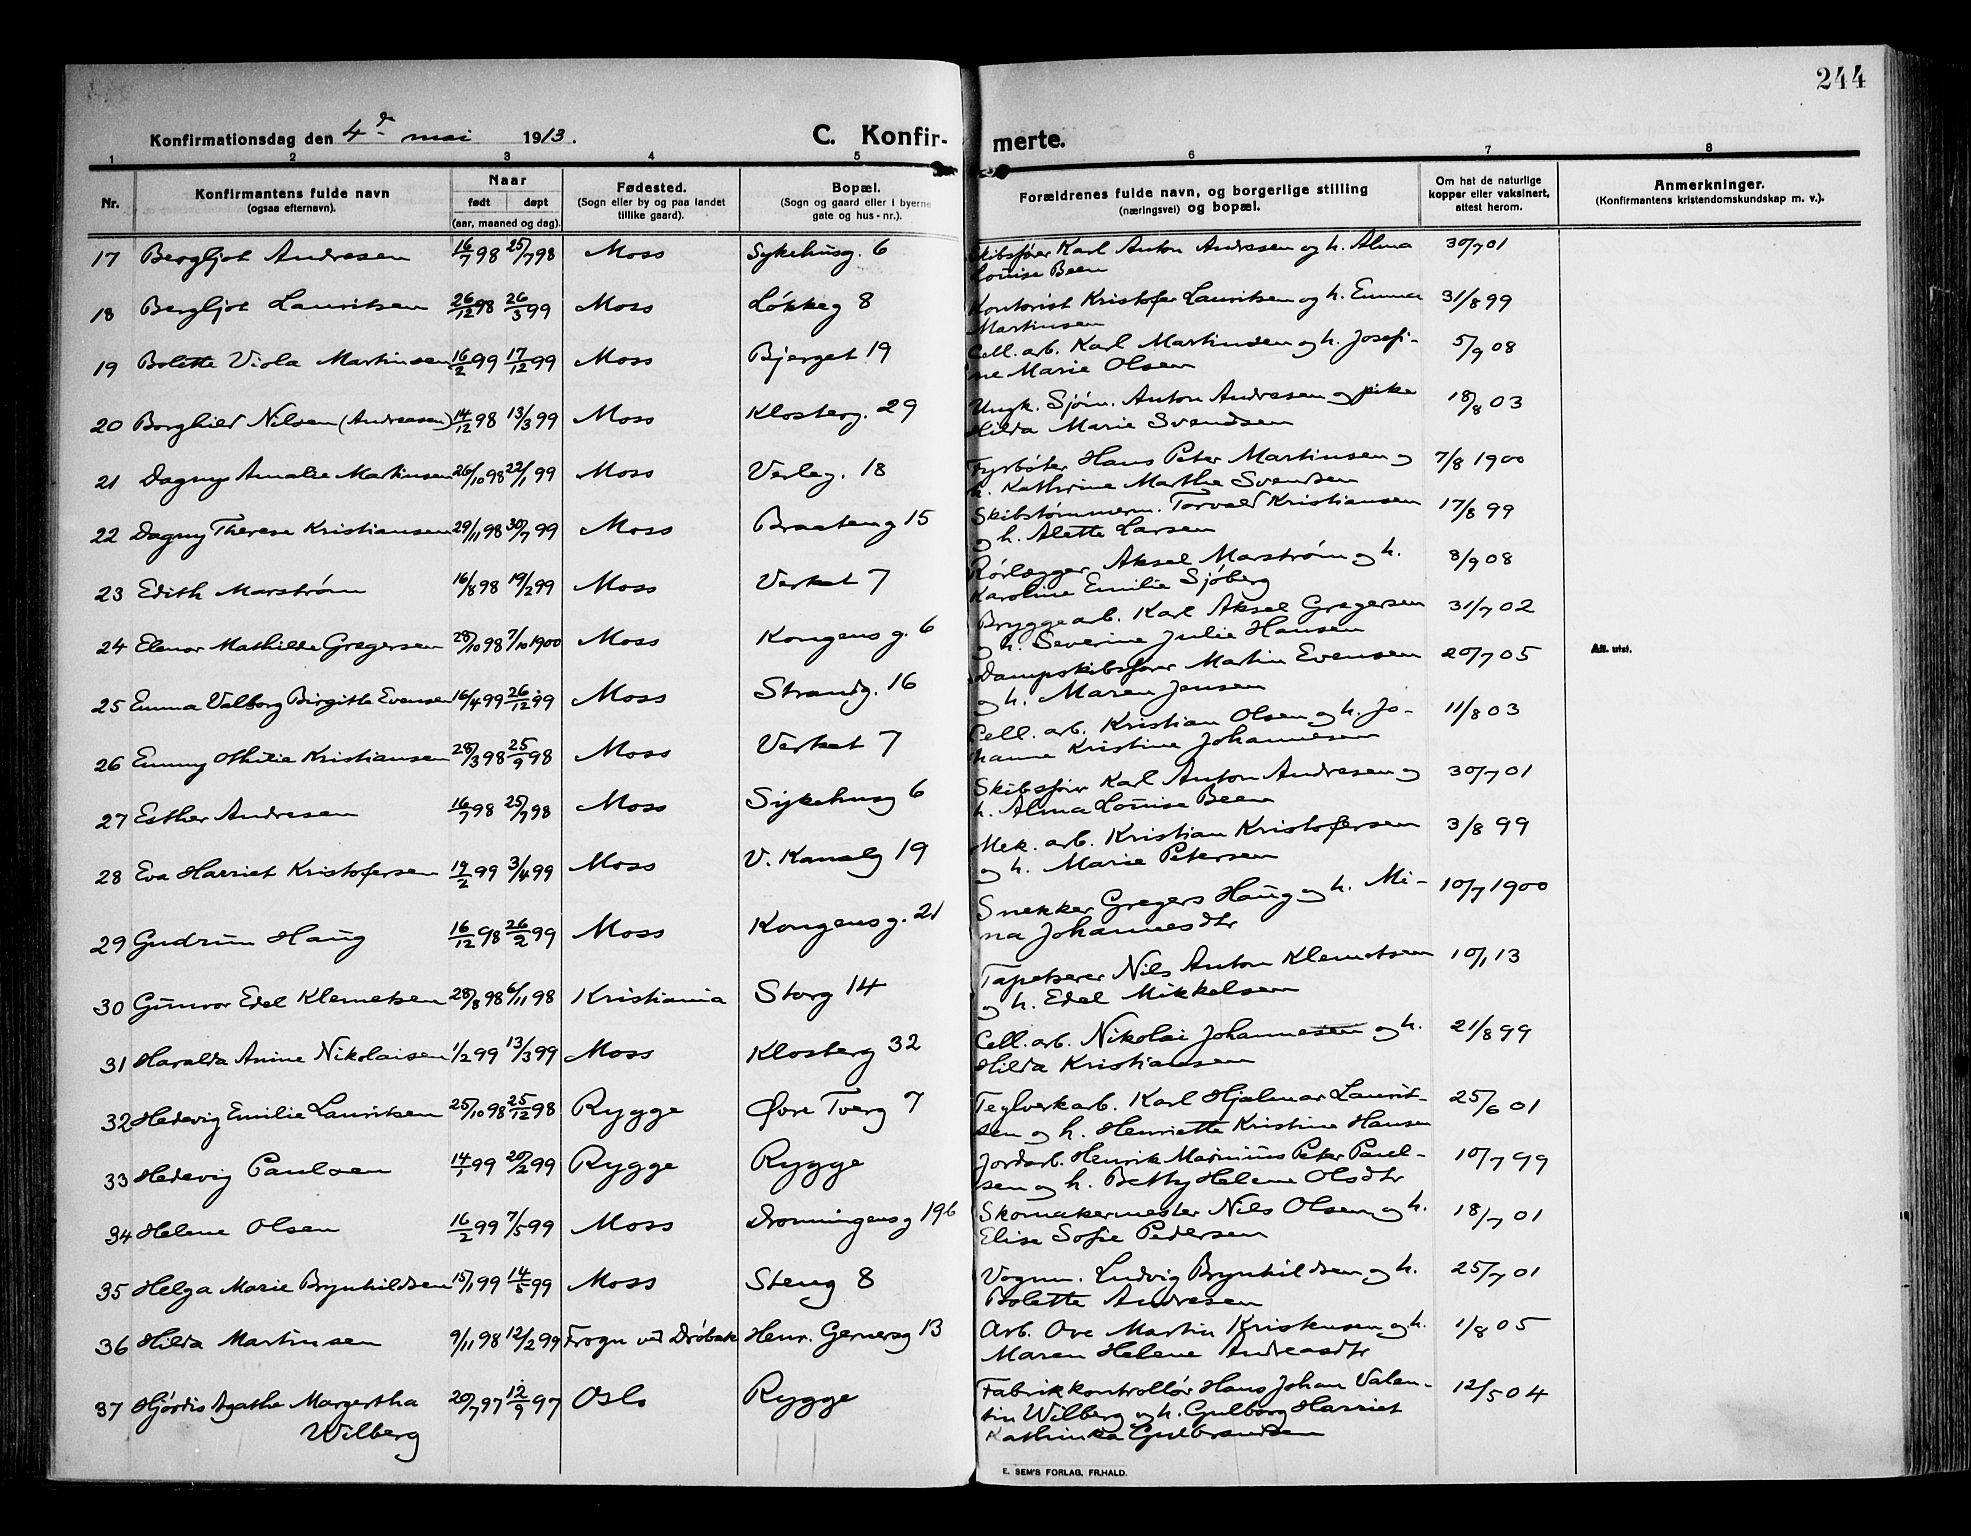 244
Konfirmationsdag den 4de mai 1913. C. Konfir- merte.
1 2 3 4 5 6 7 8
Nr. Konfirmantens fulde navn (ogsaa efternavn). Naar født døpt (aar, maaned og dag). Fødested. (Sogn eller by og paa landet tillike gaard). Bopæl. (Sogn og gaard eller i byerne gate og hus-nr.). Forældrenes fulde navn, og borgerlige stilling (næringsvei) og bopæl. Om hat de naturlige kopper eller vaksinert, attest herom. Anmerkninger. (Konfirmantens kristendomskundskap m. v.).
17 Bergljot Andresen 16/7 98 25/7 98 Moss Sykehusg. 6 Skibsfører Karl Anton Andresen og h. Alma 30/7 01
Louise Been
18 Bergljot Lauritsen 26/12 98 26/3 99 Moss Løkkeg 8 Kontorist Kristofer Lauritsen og h. Emma 31/8 99
Martinsen
19 Bolette Viola Martinsen 16/2 99 17/12 99 Moss Bjerget 19 Cell. arb. Karl Martinsen og h. Josefi- 5/9 08
ne Marie Olsen
20 Borghild Nilsen (Andreasen) 14/12 98 13/3 99 Moss Klosterg. 29 Ungk. Sjøm. Anton Andresen og pike 18/8 03
Hilda Marie Svendsen
21 Dagny Amalie Martinsen 26/10 98 22/1 99 Moss Verleg. 18 Fyrbøter Hans Peter Martinsen og 7/8 1900
h. Kathrine Marthe Svendsen
22 Dagny Therese Kristiansen 29/11 98 30/7 99 Moss Braateng 15 Skibstømmerm. Torvald Kristiansen 17/8 99
og h. Alette Larsen
23 Edith Marstrøm 16/8 98 19/2 99 Moss Verket 7 Rørlægger Aksel Marstrøm og h. 8/9 08
Karoline Emilie Sjøberg
24 Elenor Mathilde Gregersen 28/10 98 7/10 1900 Moss Kongens g. 6 Bryggearb. Karl Aksel Gregersen 31/7 02
og h. Severine Julie Hansen
25 Emma Valborg Birgitte Evensen 16/4 99 26/12 99 Moss Strandg. 16 Dampskibsfører Martin Evensen 20/7 05 Att. utst.
og h. Maren Jensen
26 Emmy Othilie Kristiansen 28/3 98 25/9 98 Moss Verket 7 Cell. arb. Kristian Olsen og h. Jo- 11/8 03
hanne Kristine Johannesen
27 Esther Andresen 16/7 98 25/7 98 Moss Sykehusg 6 Skibsfører Karl Anton Andresen og 30/7 01
h. Alma Louise Been
28 Eva Harriet Kristofersen 19/2 99 3/4 99 Moss V. Kanalg 19 Mek. arb. Kristian Kristofersen 3/8 99
og h. Marie Petersen
29 Gudrun Haug 16/12 98 26/2 99 Moss Kongens g. 21 Snekker Gregers Haug og h. Mi- 10/7 1900
na Johannesdtr
30 Gunvor Edel Klemetsen 28/8 98 6/11 98 Kristiania Storg 14 Tapetserer Nils Anton Klemetsen 10/1 13
og h. Edel Mikkelsen
31 Haralda Anine Nikolaisen 1/2 99 13/3 99 Moss Klosterg 32 Cell. arb. Nikolai Johannesen og h. 21/8 99
Hilda Kristiansen
32 Hedevig Emilie Lauritsen 25/10 98 25/12 98 Rygge Øvre Tverg 7 Teglverkarb. Karl Hjalmar Laurit- 25/6 01
sen og h. Henriette Kristine Hansen
33 Hedevig Paulsen 14/1 99 20/2 99 Rygge Rygge Jordarb. Henrik Marinius Peter Paul- 10/7 99
sen og h. Betty Helene Olsdtr
34 Helene Olsen 16/2 99 7/5 99 Moss Dronningensg 19b Skomakermester Nils Olsen og h. 18/7 01
Elise Sofie Pedersen
35 Helga Marie Brynhildsen 15/1 99 14/5 99 Moss Steng 8 Vognm. Ludvig Brynhildsen og h. 25/7 01
Bolette Andresen
36 Hilda Martinsen 9/11 98 12/2 99 Frogn ved Drøbak Henr. Gernersg 13 Arb. Ove Martin Kristensen og h. 1/8 05
Maren Helene Andreasdtr
37 Hjørdis Agathe Margertha 20/7 97 12/9 97 Oslo Rygge Fabrikkontrollør Hans Johan Valen- 12/5 04
Wilberg tin Wilberg og h. Gulborg Harriet
Kathinka Gulbrandsen
E. SEM'S FORLAG, FR.HALD.